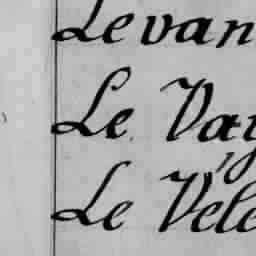 Levan
Le Vay
Le Vele